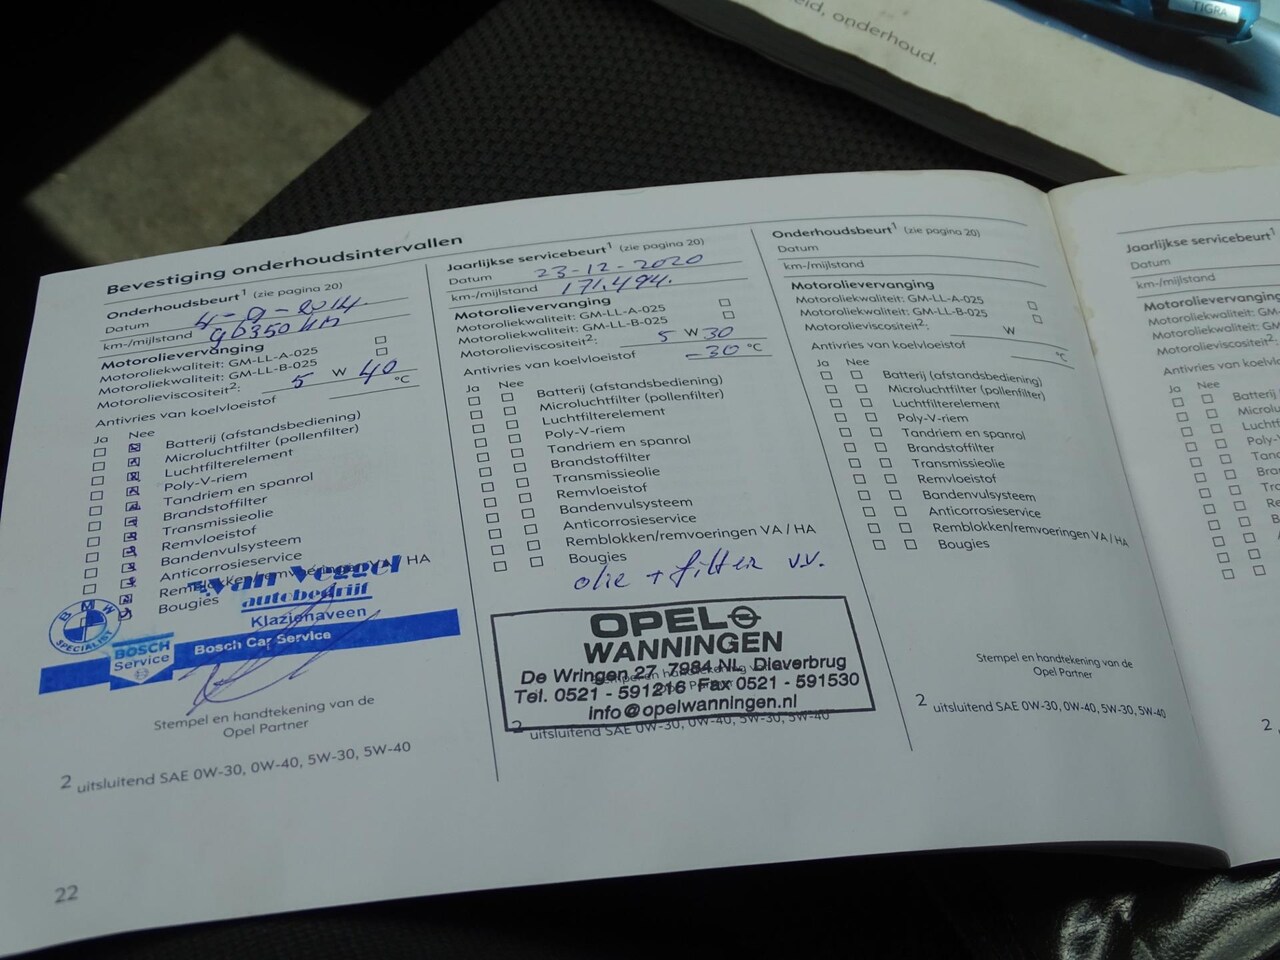 TIGRA
eid, onderhoud.
Bevestiging onderhoudsintervallen
Onderhoudsbeurt¹ (zie pagina 20)
Datum 4-9-2014
km-/mijlstand 96350 km
Motorolievervanging
Motoroliekwaliteit: GM-LL-A-025
Motoroliekwaliteit: GM-LL-B-025
Motorolieviscositeit²: 5 W 40
Antivries van koelvloeistof °C
Ja Nee
Batterij (afstandsbediening)
Microluchtfilter (pollenfilter)
Luchtfilterelement
Poly-V-riem
Tandriem en spanrol
Brandstoffilter
Transmissieolie
Remvloeistof
Bandenvulsysteem
Anticorrosieservice
Remblokken/remvoeringen VA / HA
Bougies
Van Veggel
autobedrijf
Klazienaveen
BMW
SPECIALIST
BOSCH
Service
Bosch Car Service
Stempel en handtekening van de
Opel Partner
2 uitsluitend SAE 0W-30, 0W-40, 5W-30, 5W-40
22
Jaarlijkse servicebeurt¹ (zie pagina 20)
Datum 23-12-2020
km-/mijlstand 171.494.
Motorolievervanging
Motoroliekwaliteit: GM-LL-A-025
Motoroliekwaliteit: GM-LL-B-025
Motorolieviscositeit²: 5 W 30
Antivries van koelvloeistof -30 °C
Ja Nee
Batterij (afstandsbediening)
Microluchtfilter (pollenfilter)
Luchtfilterelement
Poly-V-riem
Tandriem en spanrol
Brandstoffilter
Transmissieolie
Remvloeistof
Bandenvulsysteem
Anticorrosieservice
Remblokken/remvoeringen VA / HA
Bougies
olie + filter v.v.
OPEL
WANNINGEN
De Wringen 27 - 7984 NL Dieverbrug
Tel. 0521 - 591216 Fax 0521 - 591530
info@opelwanningen.nl
2 uitsluitend SAE 0W-30, 0W-40, 5W-30, 5W-40
Onderhoudsbeurt¹ (zie pagina 20)
Datum
km-/mijlstand
Motorolievervanging
Motoroliekwaliteit: GM-LL-A-025
Motoroliekwaliteit: GM-LL-B-025
Motorolieviscositeit²: W
Antivries van koelvloeistof °C
Ja Nee
Batterij (afstandsbediening)
Microluchtfilter (pollenfilter)
Luchtfilterelement
Poly-V-riem
Tandriem en spanrol
Brandstoffilter
Transmissieolie
Remvloeistof
Bandenvulsysteem
Anticorrosieservice
Remblokken/remvoeringen VA / HA
Bougies
Stempel en handtekening van de
Opel Partner
2 uitsluitend SAE 0W-30, 0W-40, 5W-30, 5W-40
Jaarlijkse servicebeurt¹
Datum
km-/mijlstand
Motorolievervanging
Motoroliekwaliteit: G
Motoroliekwaliteit: G
Motorolieviscositeit²
Antivries van koelvl
Ja Nee
Batterij
Microlu
Luchtf
Poly-V
Tand
Bran
Tra
Re
B
A
2